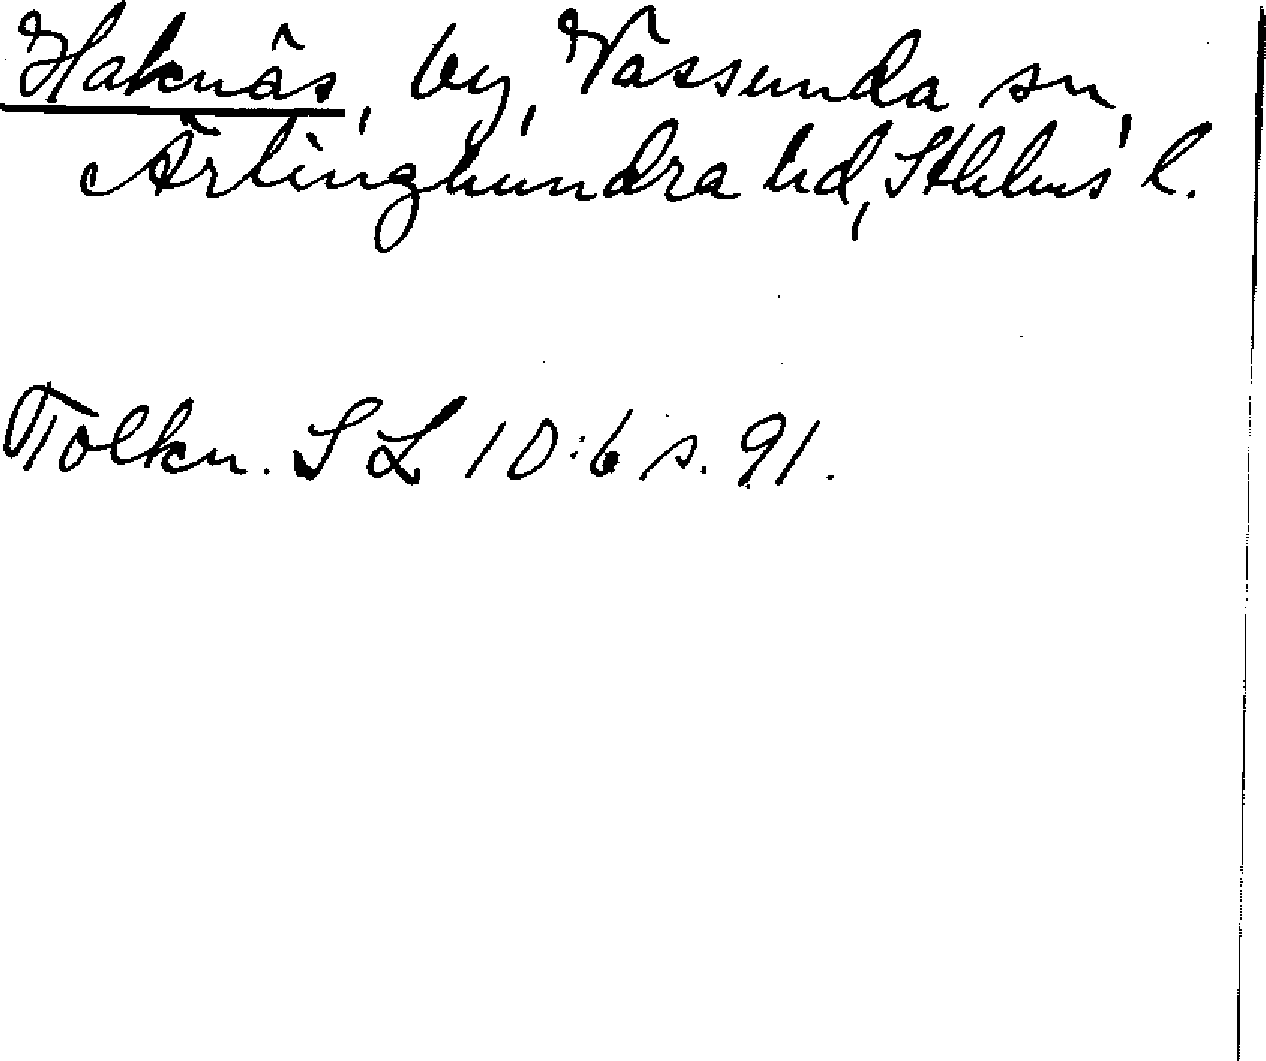 Haknäs, by, Vassunda sn,
Ärlinghundra hd, Sthlms l.
Tolkn. SL 10:6 s. 91.